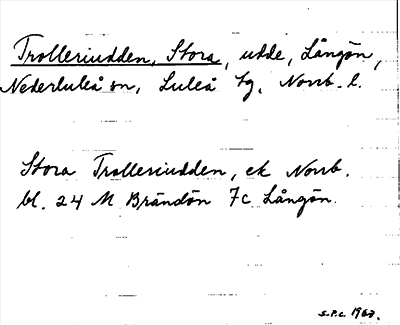 Trolleriudden, Stora, udde, Långön,
Nederluleå sn, Luleå tg, Norrb. l.
Stora Trolleriudden, ek Norrb.
bl. 24 M Brändön 7c Långön.
S.P.C. 1963.